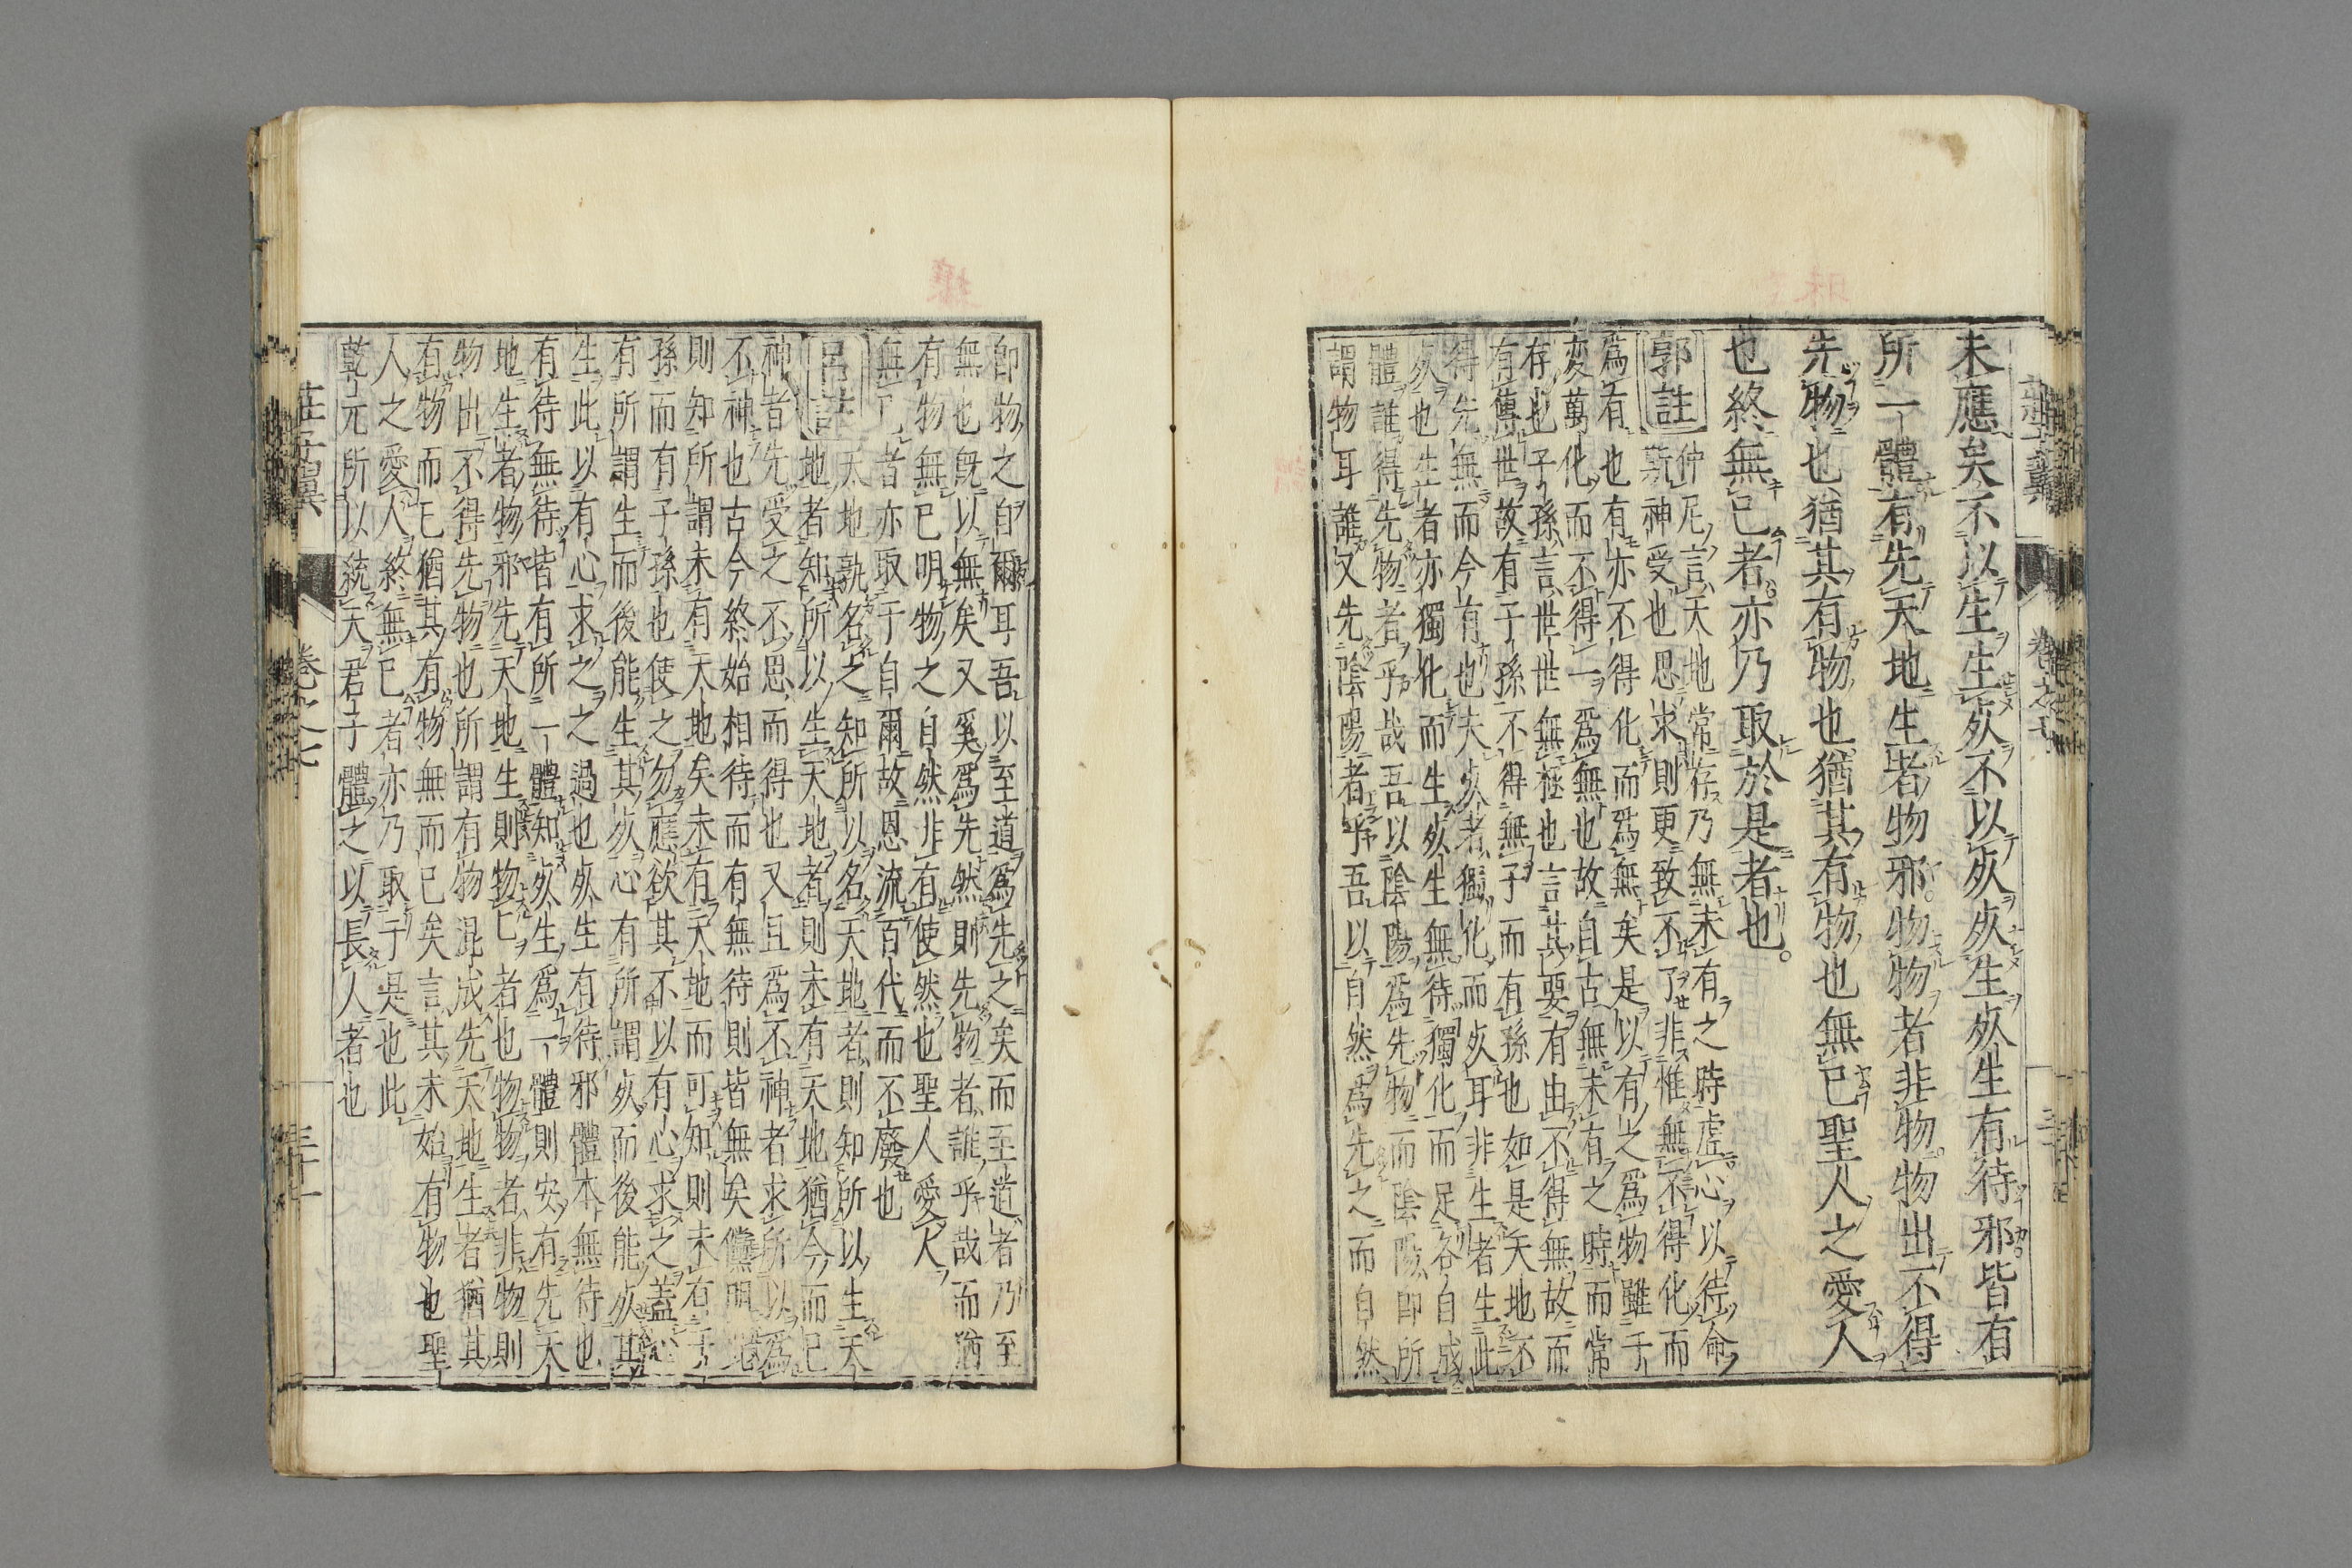 未應矣不以生生死不以死死生死生有待邪皆有
所一體有先天地生者物邪物物者非物物出不得
先物也猶其有物也猶其有物也無已聖人之愛人
也終無已者亦乃取於是者也
郭註
仲尼言天地常存乃無未有之時虚心以待命
斯神受也思求則更致不了非惟無不得化而
爲有也有亦不得化而爲無矣是以有之爲物雖千
変萬化而不得一爲無也故自古無未有之時而常
存也子孫言世世無極也言其要有由不得無故而
有傳世故有子孫不得無子而有孫也如是天地不
得先無而今有也夫死者獨化而死耳非生者生此
死也生者亦獨化而生死生無待獨化而足各自成
體誰得先物者乎哉吾以陰陽爲先物而陰陽即所
謂物耳誰又先陰陽者乎吾以自然爲先之而自然
即物之自爾耳吾以至道爲先之矣而至道者乃至
無也既以無矣又奚爲先然則先物者誰乎哉而猶
有物無已明物之自然非有使然也聖人愛人
無已者亦取于自爾故恩流百代而不廢也
呂註
天地孰名之知所以名天地者則知所以生天
地者知所以生天地者則未有天地猶今而已
神者先受之不思而得也又且爲不神者求所以爲
不神也古今終始相待而有無待則皆無矣儻明此
則知所謂未有天地矣未有天地而可知則未有子
孫而有子孫也使之勿應欲其不以有心求之蓋心
有所謂生而後能生其死心有所謂死而後能死其
生此以有心求之之過也死生有待邪體本無待也
有待無待皆有所一體知死生爲一體則安有先天
地生者物邪先天地生則物已者也物物者非物則
物出不得先物也所謂有物混成先天地生者猶其
有物而已猶其有物無而已矣言其未始有物也聖
人之愛人終無已者亦乃取于是也此
乾元所以統天君子體之以長人者也
莊子翼
卷之七
三十一